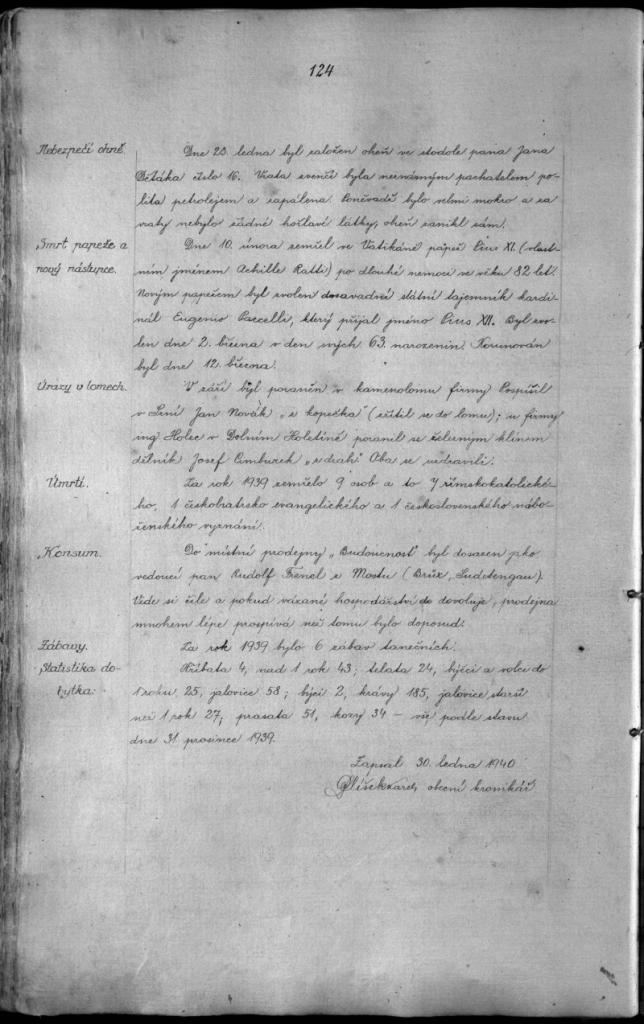 124
Nebezpečí ohně.
Dne 23. ledna byl založen oheň ve stodole pana Jana
číslo 16. Vrata zvenčí byla neznámým pachatelem po-
lita petrolejem a zapálena. Poněvadž bylo velmi mokro a za
vraty nebylo žádné hořlavé látky, oheň zanikl sám.
Smrt papeže a
nový nástupce.
Dne 10. února zemřel ve Vatikáně papež Pius XI. (vlast-
ním jménem Achille Ratti) po dlouhé nemoci ve věku 82 let.
Novým papežem byl zvolen dosavadní státní tajemník kardi-
nál Eugenio Paccelli, který přijal jméno Pius XII. Byl zvo-
len dne 2. března v den svých 63. narozenin. Korunován
byl dne 12. března.
Úrazy v lomech.
V září byl poraněn v kamenolomu firmy Pospíšil
v Srní Jan Novák „z kopečka" (zřítil se do lomu); u firmy
ing Holec v Dolním Holetíně poranil se železným klínem
dělník Josef Cimburek „z drah." Oba se uzdravili.
Úmrtí.
Za rok 1939 zemřelo 9 osob a to 7 římskokatolické-
ho, 1 českobratrsko evangelického a 1 československého nábo-
ženského vyznání.
Konsum.
Do místní prodejny „Budoucnost" byl dosazen jako
vedoucí pan Rudolf Frencl z Mostu (Brüx, Sudetengau).
Vede si čile a pokud vázané hospodářství to dovoluje, prodejna
mnohem lépe prospívá než tomu bylo doposud.
Zábavy.
Za rok 1939 bylo 6 zábav tanečních.
Statistika do-
bytka:
Hříbata 4, nad 1 rok 43; telata 24, býčci a volci do
1 roku 25, jalovice 58; býci 2, krávy 185, jalovice starší
než 1 rok 27; prasata 51, kozy 34 – vše podle stavu
dne 31. prosince 1939.
Zapsal 30. ledna 1940
obecní kronikář